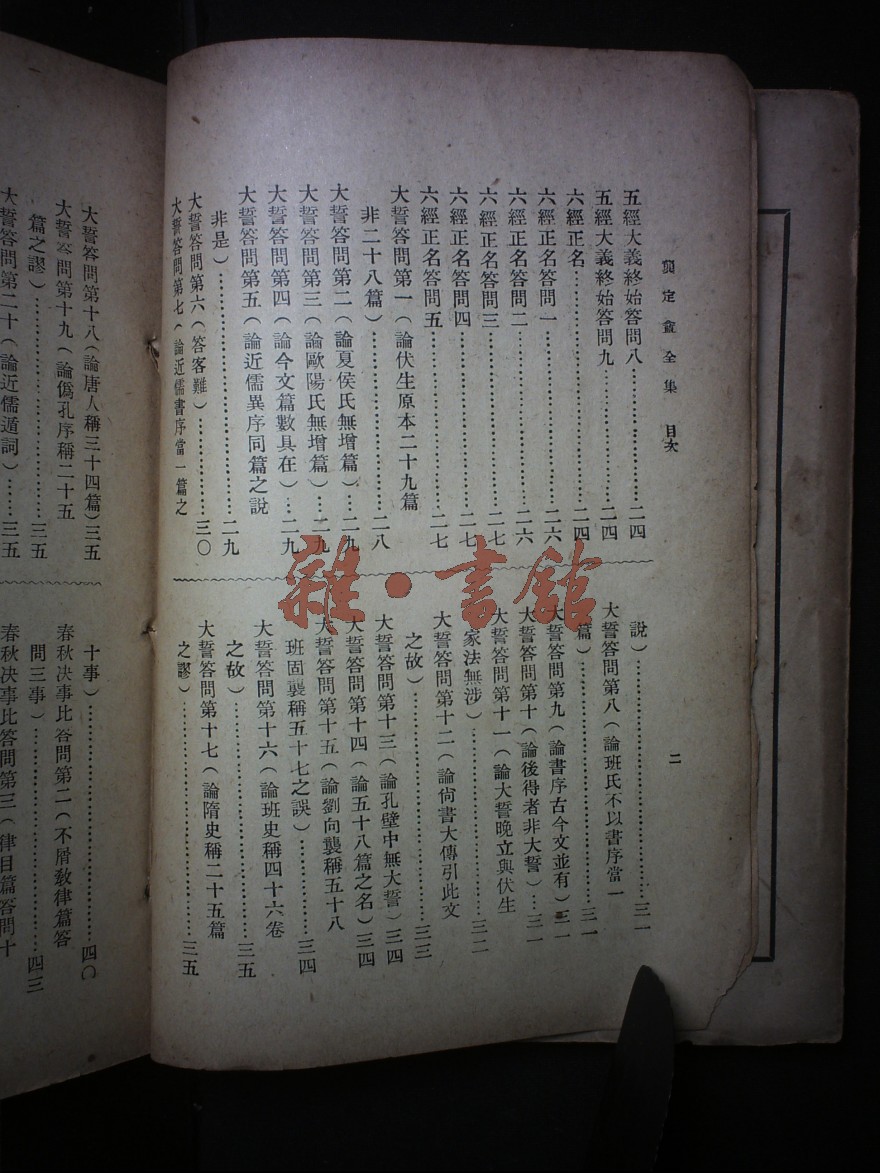 龔定盦全集 目次
二
五經大義終始答問八……………二四
五經大義終始答問九……………二四
六經正名……………二四
六經正名答問一……………二六
六經正名答問二……………二六
六經正名答問三……………二七
六經正名答問四……………二七
六經正名答問五……………二七
大誓答問第一(論伏生原本二十九篇
非二十八篇)……………二八
大誓答問第二(論夏侯氏無增篇)…二九
大誓答問第三(論歐陽氏無增篇)…二九
大誓答問第四(論今文篇數具在)…二九
大誓答問第五(論近儒異序同篇之說
非是)……………二九
大誓答問第六(答客難)……………三〇
大誓答問第七(論近儒書序當一篇之
說)……………三一
大誓答問第八(論班氏不以書序當一
篇)……………三一
大誓答問第九(論書序古今文並有)三一
大誓答問第十(論後得者非大誓)…三一
大誓答問第十一(論大誓晚立與伏生
家法無涉)……………三二
大誓答問第十二(論尙書大傳引此文
之故)……………三三
大誓答問第十三(論孔壁中無大誓)三四
大誓答問第十四(論五十八篇之名)三四
大誓答問第十五(論劉向襲稱五十八
班固襲稱五十七之誤)……………三四
大誓答問第十六(論班史稱四十六卷
之故)……………三五
大誓答問第十七(論隋史稱二十五篇
之謬)……………三五
大誓答問第十八(論唐人稱三十四篇)三五
大誓答問第十九(論僞孔序稱二十五
篇之謬)……………三五
大誓答問第二十(論近儒遁詞)……三五
十事)……………四〇
春秋決事比答問第二(不屑敎律篇答
問三事)……………四三
春秋決事比答問第三(律目篇答問十
雜·書館